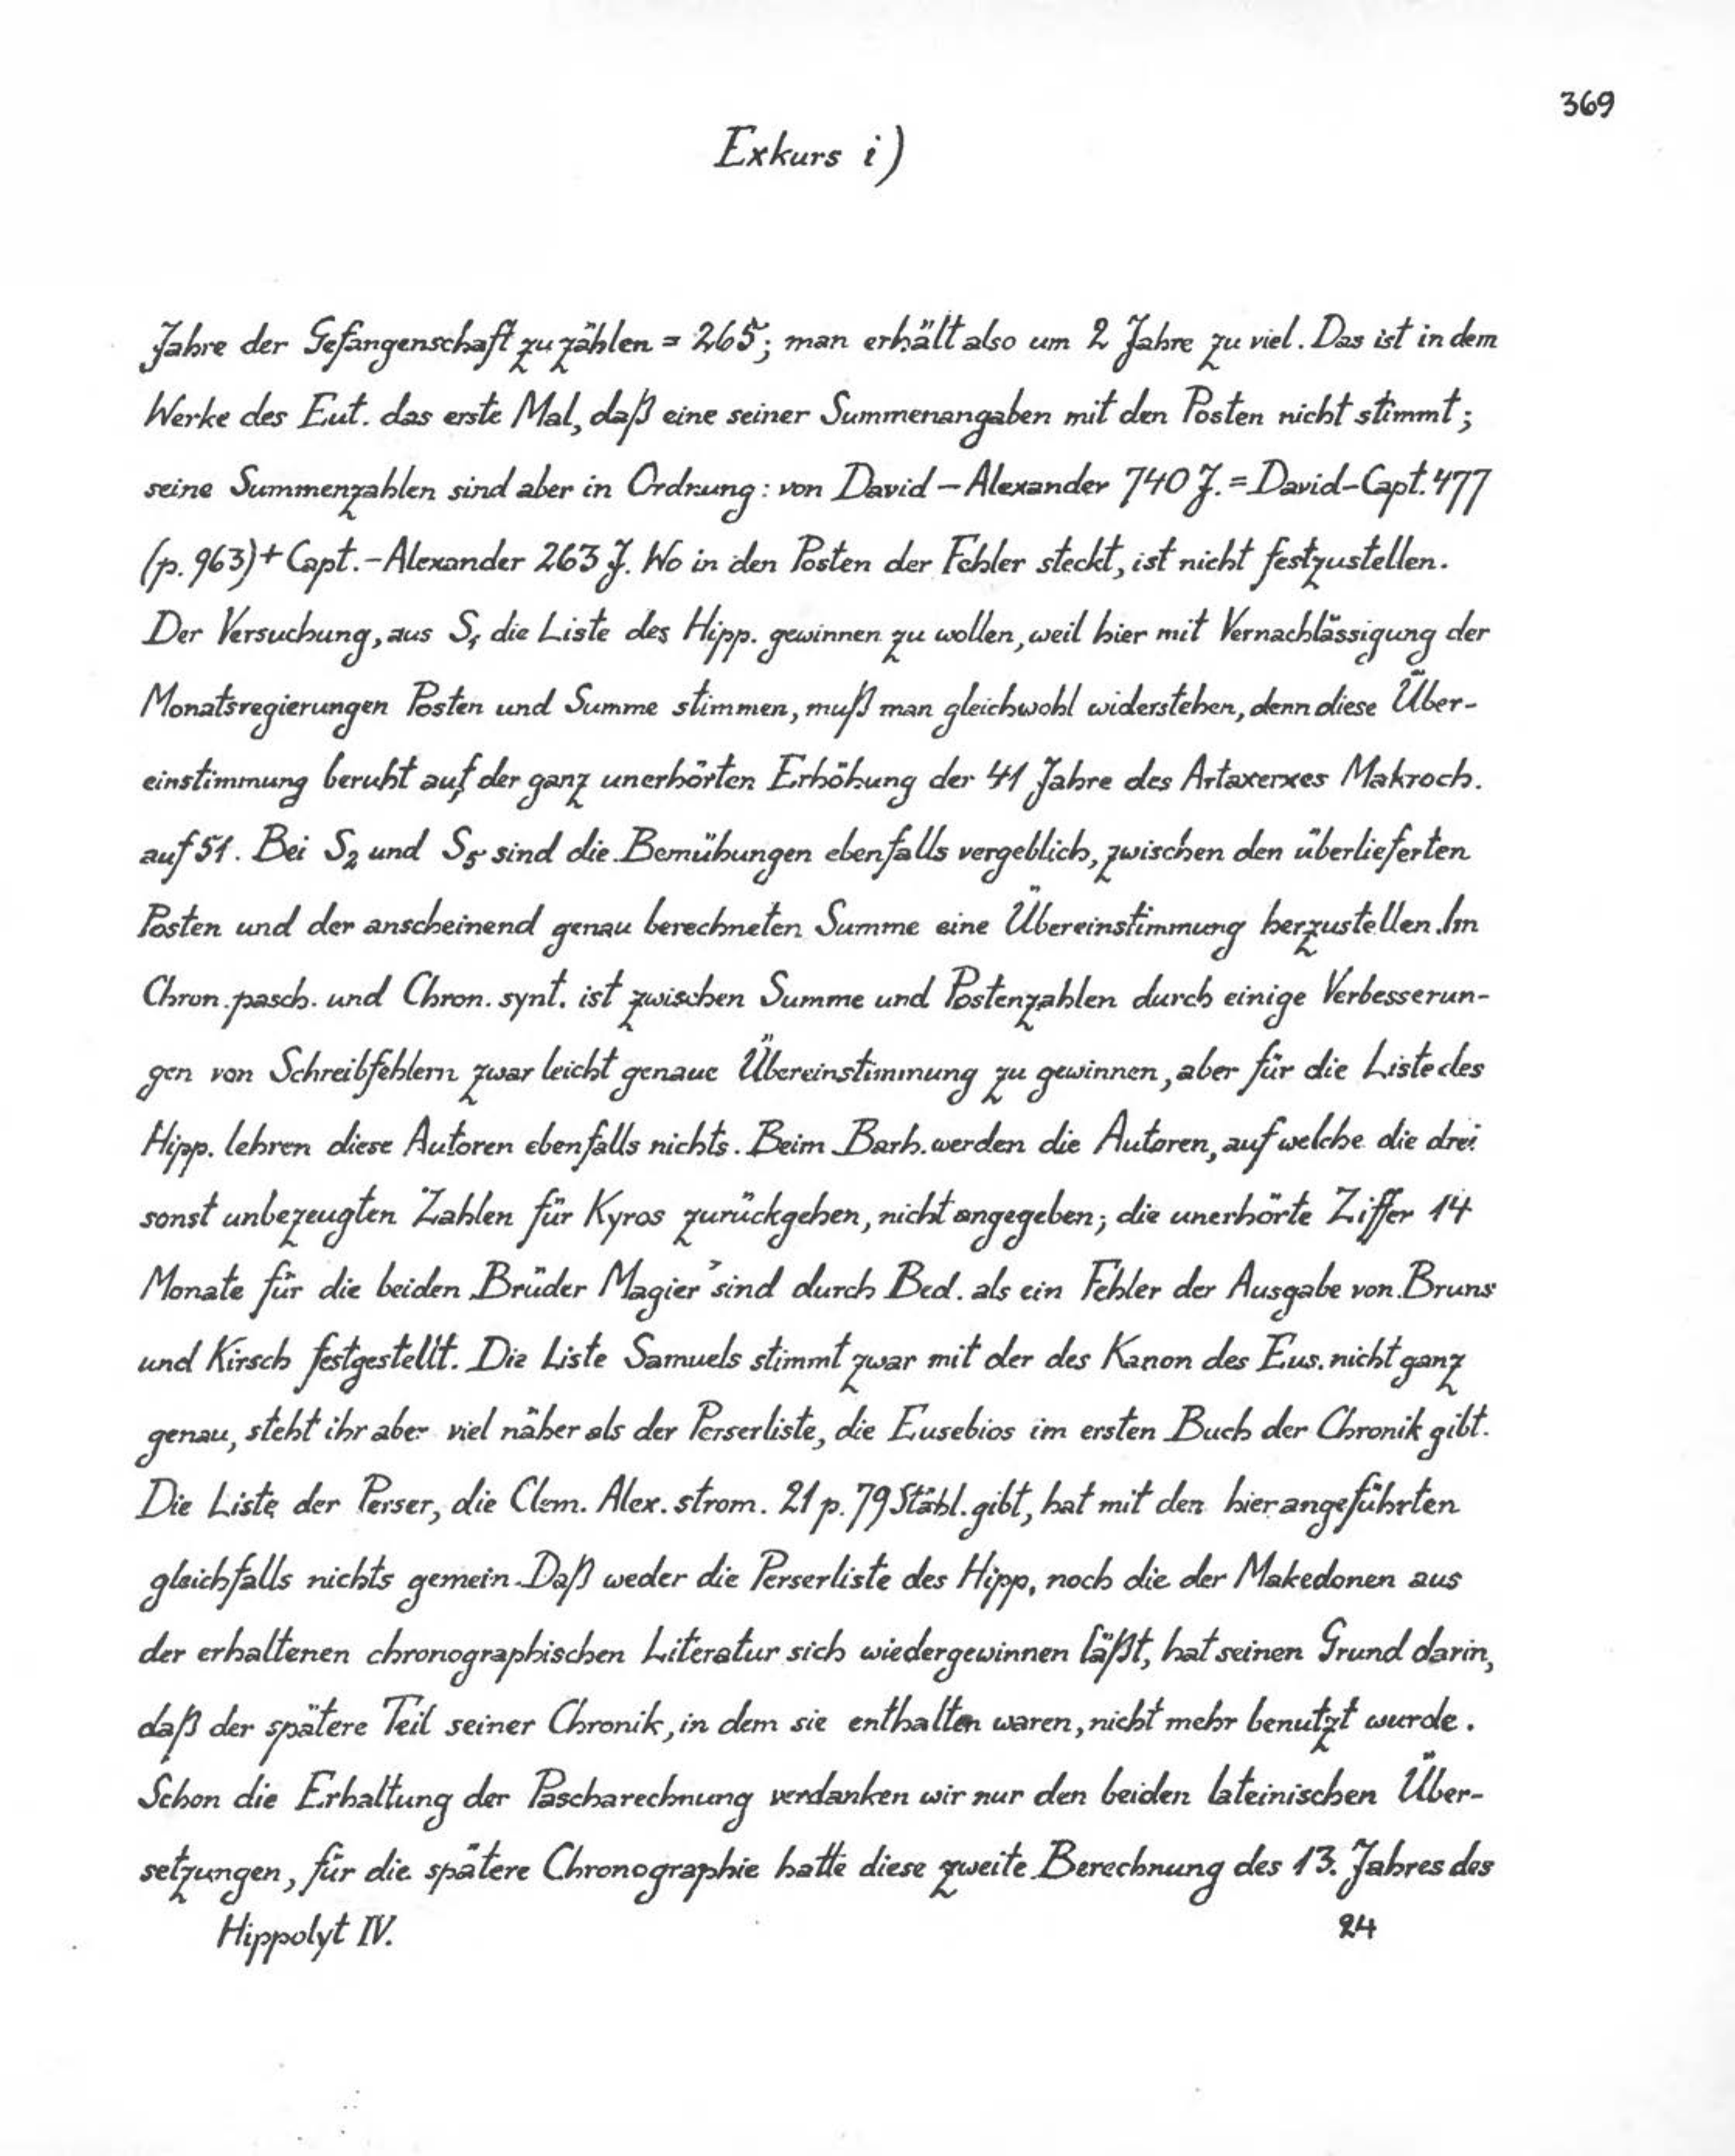 369
Exkurs i)
Jahre der Gefangenschaft zu zählen = 265; man erhält also um 2 Jahre zu viel. Das ist in dem
Werke des Eut. das erste Mal, daß eine seiner Summenangaben mit den Posten nicht stimmt;
seine Summenzahlen sind aber in Ordnung: von David – Alexander 740 J. = David-Capt. 477
(p. 963) + Capt. - Alexander 263 J. Wo in den Posten der Fehler steckt, ist nicht festzustellen.
Der Versuchung, aus S₁ die Liste des Hipp. gewinnen zu wollen, weil hier mit Vernachlässigung der
Monatsregierungen Posten und Summe stimmen, muß man gleichwohl widerstehen, denn diese Über-
einstimmung beruht auf der ganz unerhörten Erhöhung der 41 Jahre des Artaxerxes Makroch.
auf 51. Bei S₂ und S₅ sind die Bemühungen ebenfalls vergeblich, zwischen den überlieferten
Posten und der anscheinend genau berechneten Summe eine Übereinstimmung herzustellen. Im
Chron. pasch. und Chron. synt. ist zwischen Summe und Postenzahlen durch einige Verbesserun-
gen von Schreibfehlern zwar leicht genaue Übereinstimmung zu gewinnen, aber für die Liste des
Hipp. lehren diese Autoren ebenfalls nichts. Beim Barh. werden die Autoren, auf welche die drei
sonst unbezeugten Zahlen für Kyros zurückgehen, nicht angegeben; die unerhörte Ziffer 14
Monate für die beiden Brüder Magier' sind durch Bed. als ein Fehler der Ausgabe von Bruns
und Kirsch festgestellt. Die Liste Samuels stimmt zwar mit der des Kanon des Eus. nicht ganz
genau, steht ihr aber viel näher als der Perserliste, die Eusebios im ersten Buch der Chronik gibt.
Die Liste der Perser, die Clem. Alex. strom. 21 p. 79 Stähl. gibt, hat mit den hier angeführten
gleichfalls nichts gemein. Daß weder die Perserliste des Hipp, noch die der Makedonen aus
der erhaltenen chronographischen Literatur sich wiedergewinnen läßt, hat seinen Grund darin,
daß der spätere Teil seiner Chronik, in dem sie enthalten waren, nicht mehr benutzt wurde.
Schon die Erhaltung der Pascharechnung verdanken wir nur den beiden lateinischen Über-
setzungen, für die spätere Chronographie hatte diese zweite Berechnung des 13. Jahres des
Hippolyt IV.
24